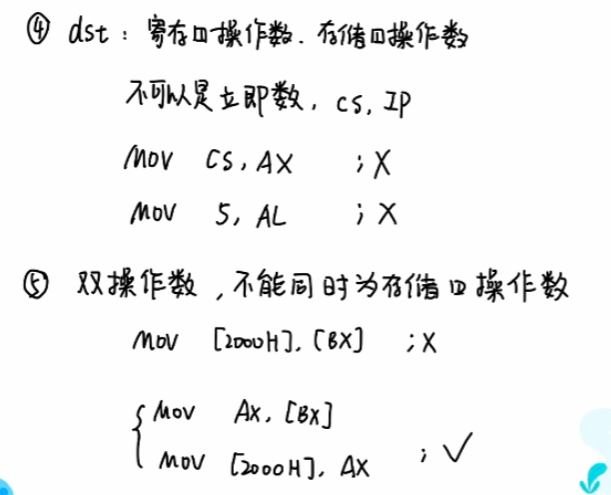 ④ dst：寄存口操作数．存储口操作数
不可以是立即数，CS，IP
MOV CS，AX ；X
MOV 5，AL ；X
⑤ 双操作数，不能同时为存储口操作数
MOV [2000H]，[BX] ；X
MOV AX，[BX]
MOV [2000H]，AX ；✓